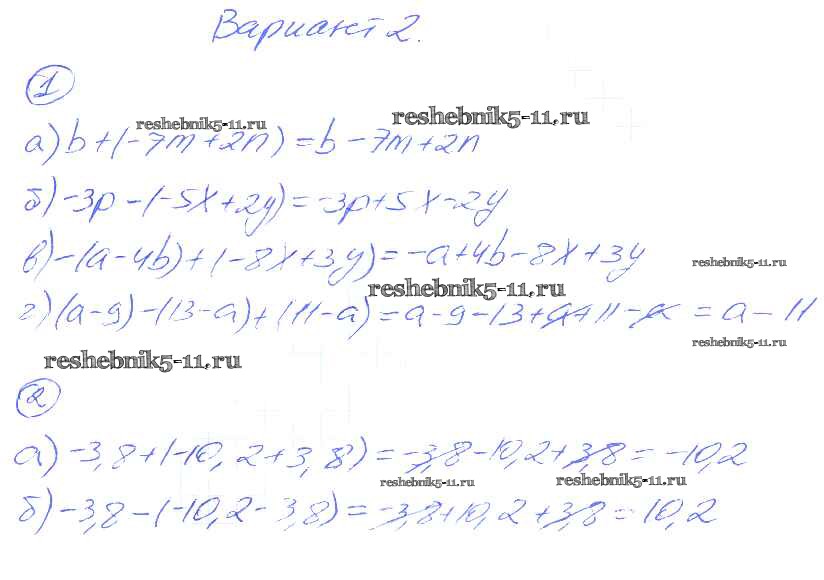 Вариант 2.
1
reshebnik5-11.ru
reshebnik5-11.ru
а) b+(-7m+2n)=b-7m+2n
б) -3p-(-5x+2y)=-3p+5x-2y
в) -(a-4b)+(-8x+3y)=-a+4b-8x+3y
reshebnik5-11.ru
reshebnik5-11.ru
г) (a-9)-(13-a)+(11-a)=a-9-13+a+11-a=a-11
reshebnik5-11.ru
reshebnik5-11.ru
2
а) -3,8+(-10,2+3,8)=-3,8-10,2+3,8=-10,2
reshebnik5-11.ru
reshebnik5-11.ru
б) -3,8-(-10,2-3,8)=-3,8+10,2+3,8=10,2